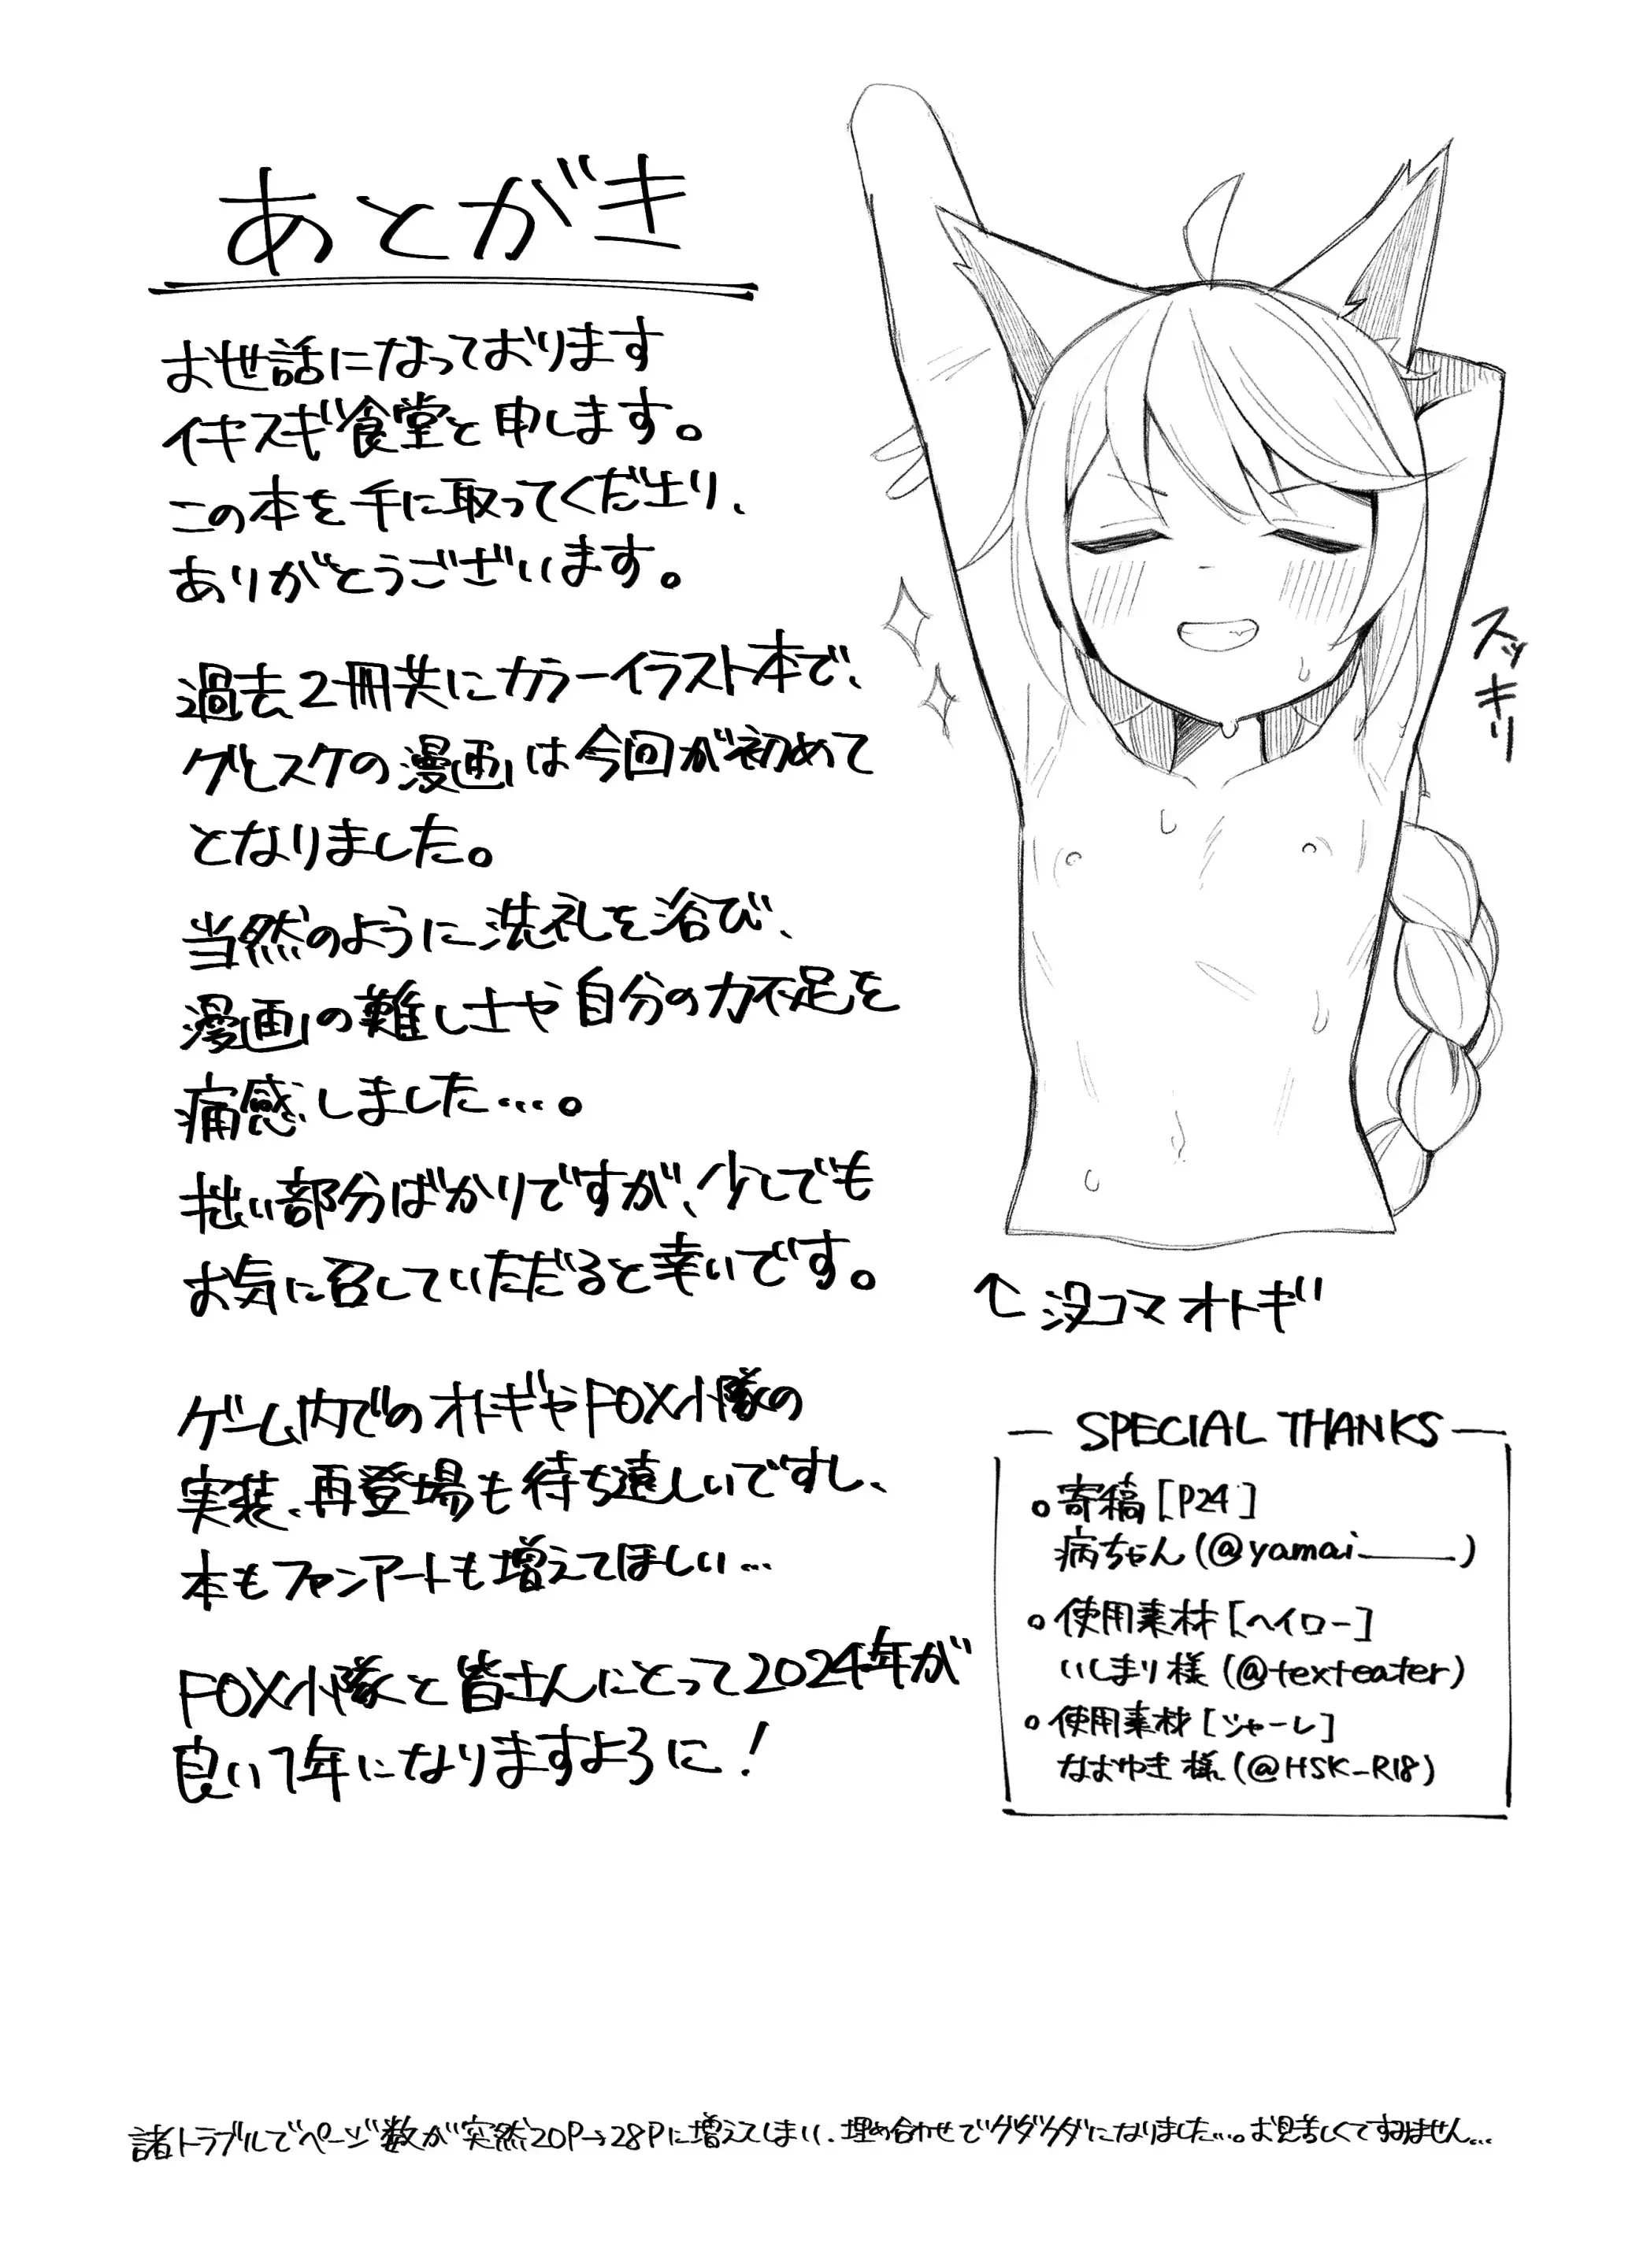 あとがき
お世話になっております
イキスギ食堂と申します。
この本を手に取ってくださり、
ありがとうございます。
過去2冊共にカラーイラスト本で、
グレスケの漫画は今回が初めて
となりました。
当然のように洗礼を浴び、
漫画の難しさや自分の力不足を
痛感しました…。
拙い部分ばかりですが、少しでも
お気に召していただると幸いです。
ゲーム内でのオトギやFOX小隊の
実装、再登場も待ち遠しいですし、
本もファンアートも増えてほしい…
FOX小隊と皆さんにとって2024年が
良い1年になりますように!
スッキリ
↑没コマオトギ
― SPECIAL THANKS ―
。寄稿[P24]
病ちゃん(@yamai_____)
。使用素材[ヘイロー]
いしまり様(@texteater)
。使用素材[シャーレ]
なおゆき様(@HSK_R18)
諸トラブルでページ数が突然20P→28Pに増えてしまい、埋め合わせでグダグダになりました…。お見苦しくてすみません…